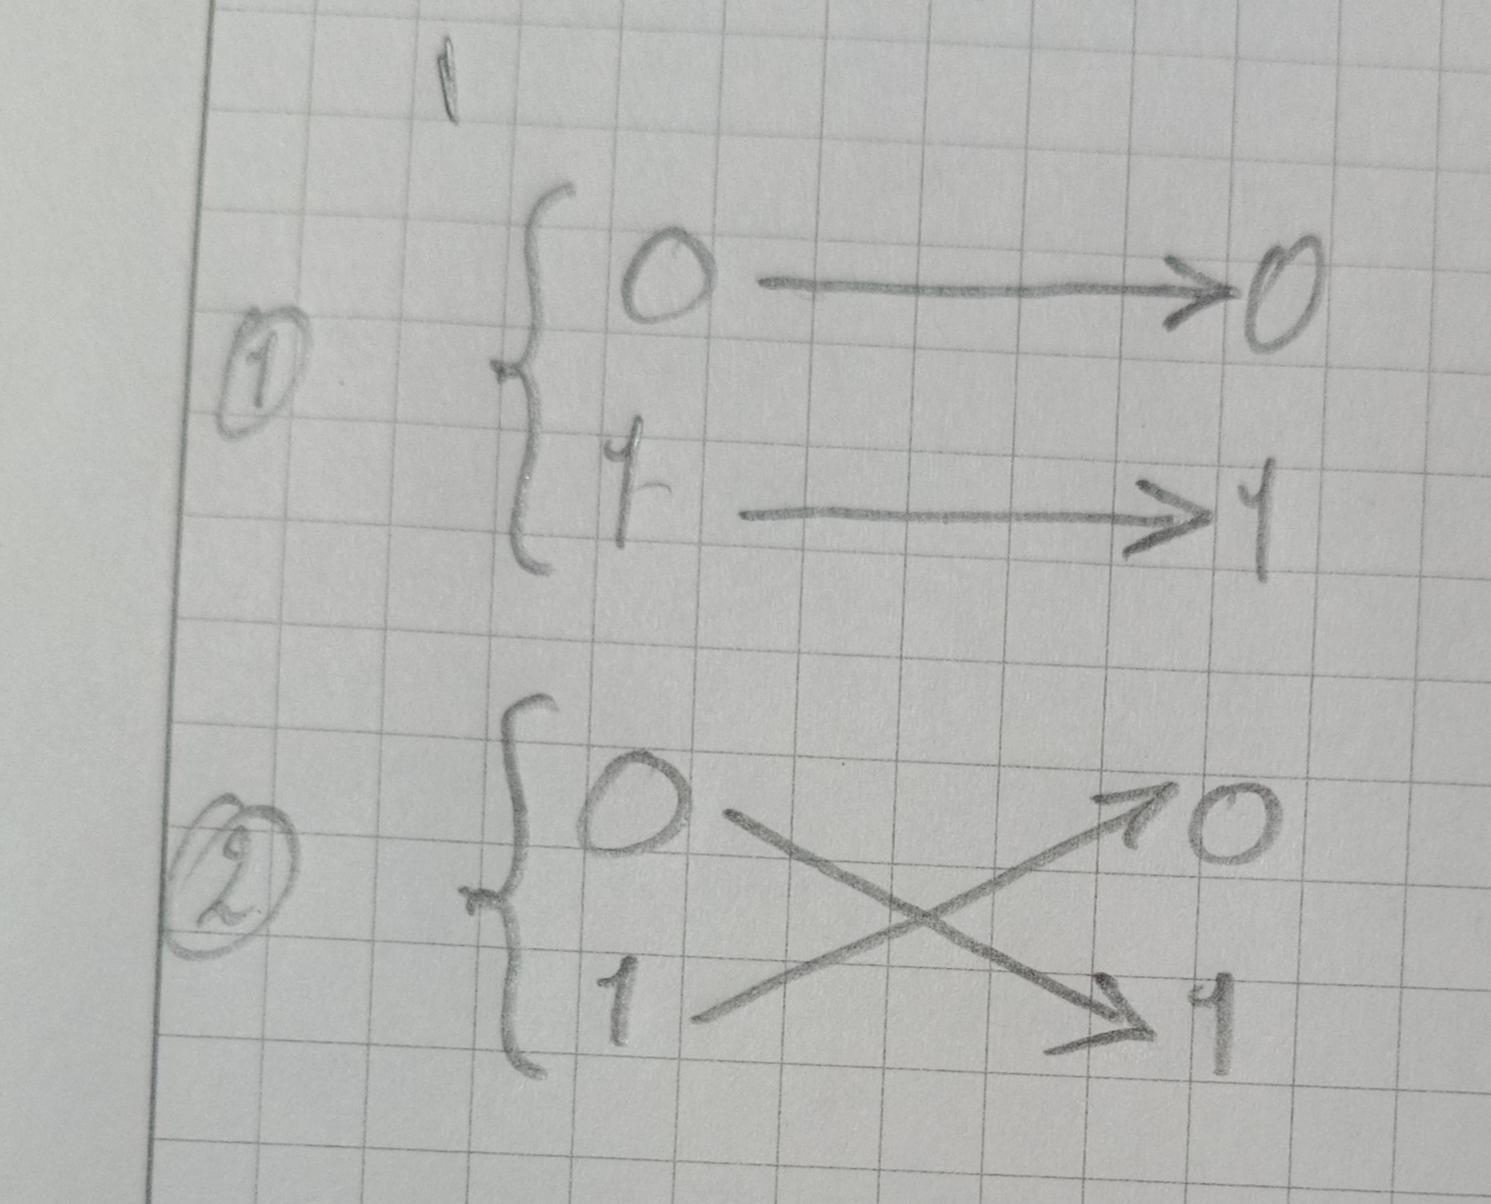 ① { 0 → 0
1 → 1
② { 0 → 1
1 → 0